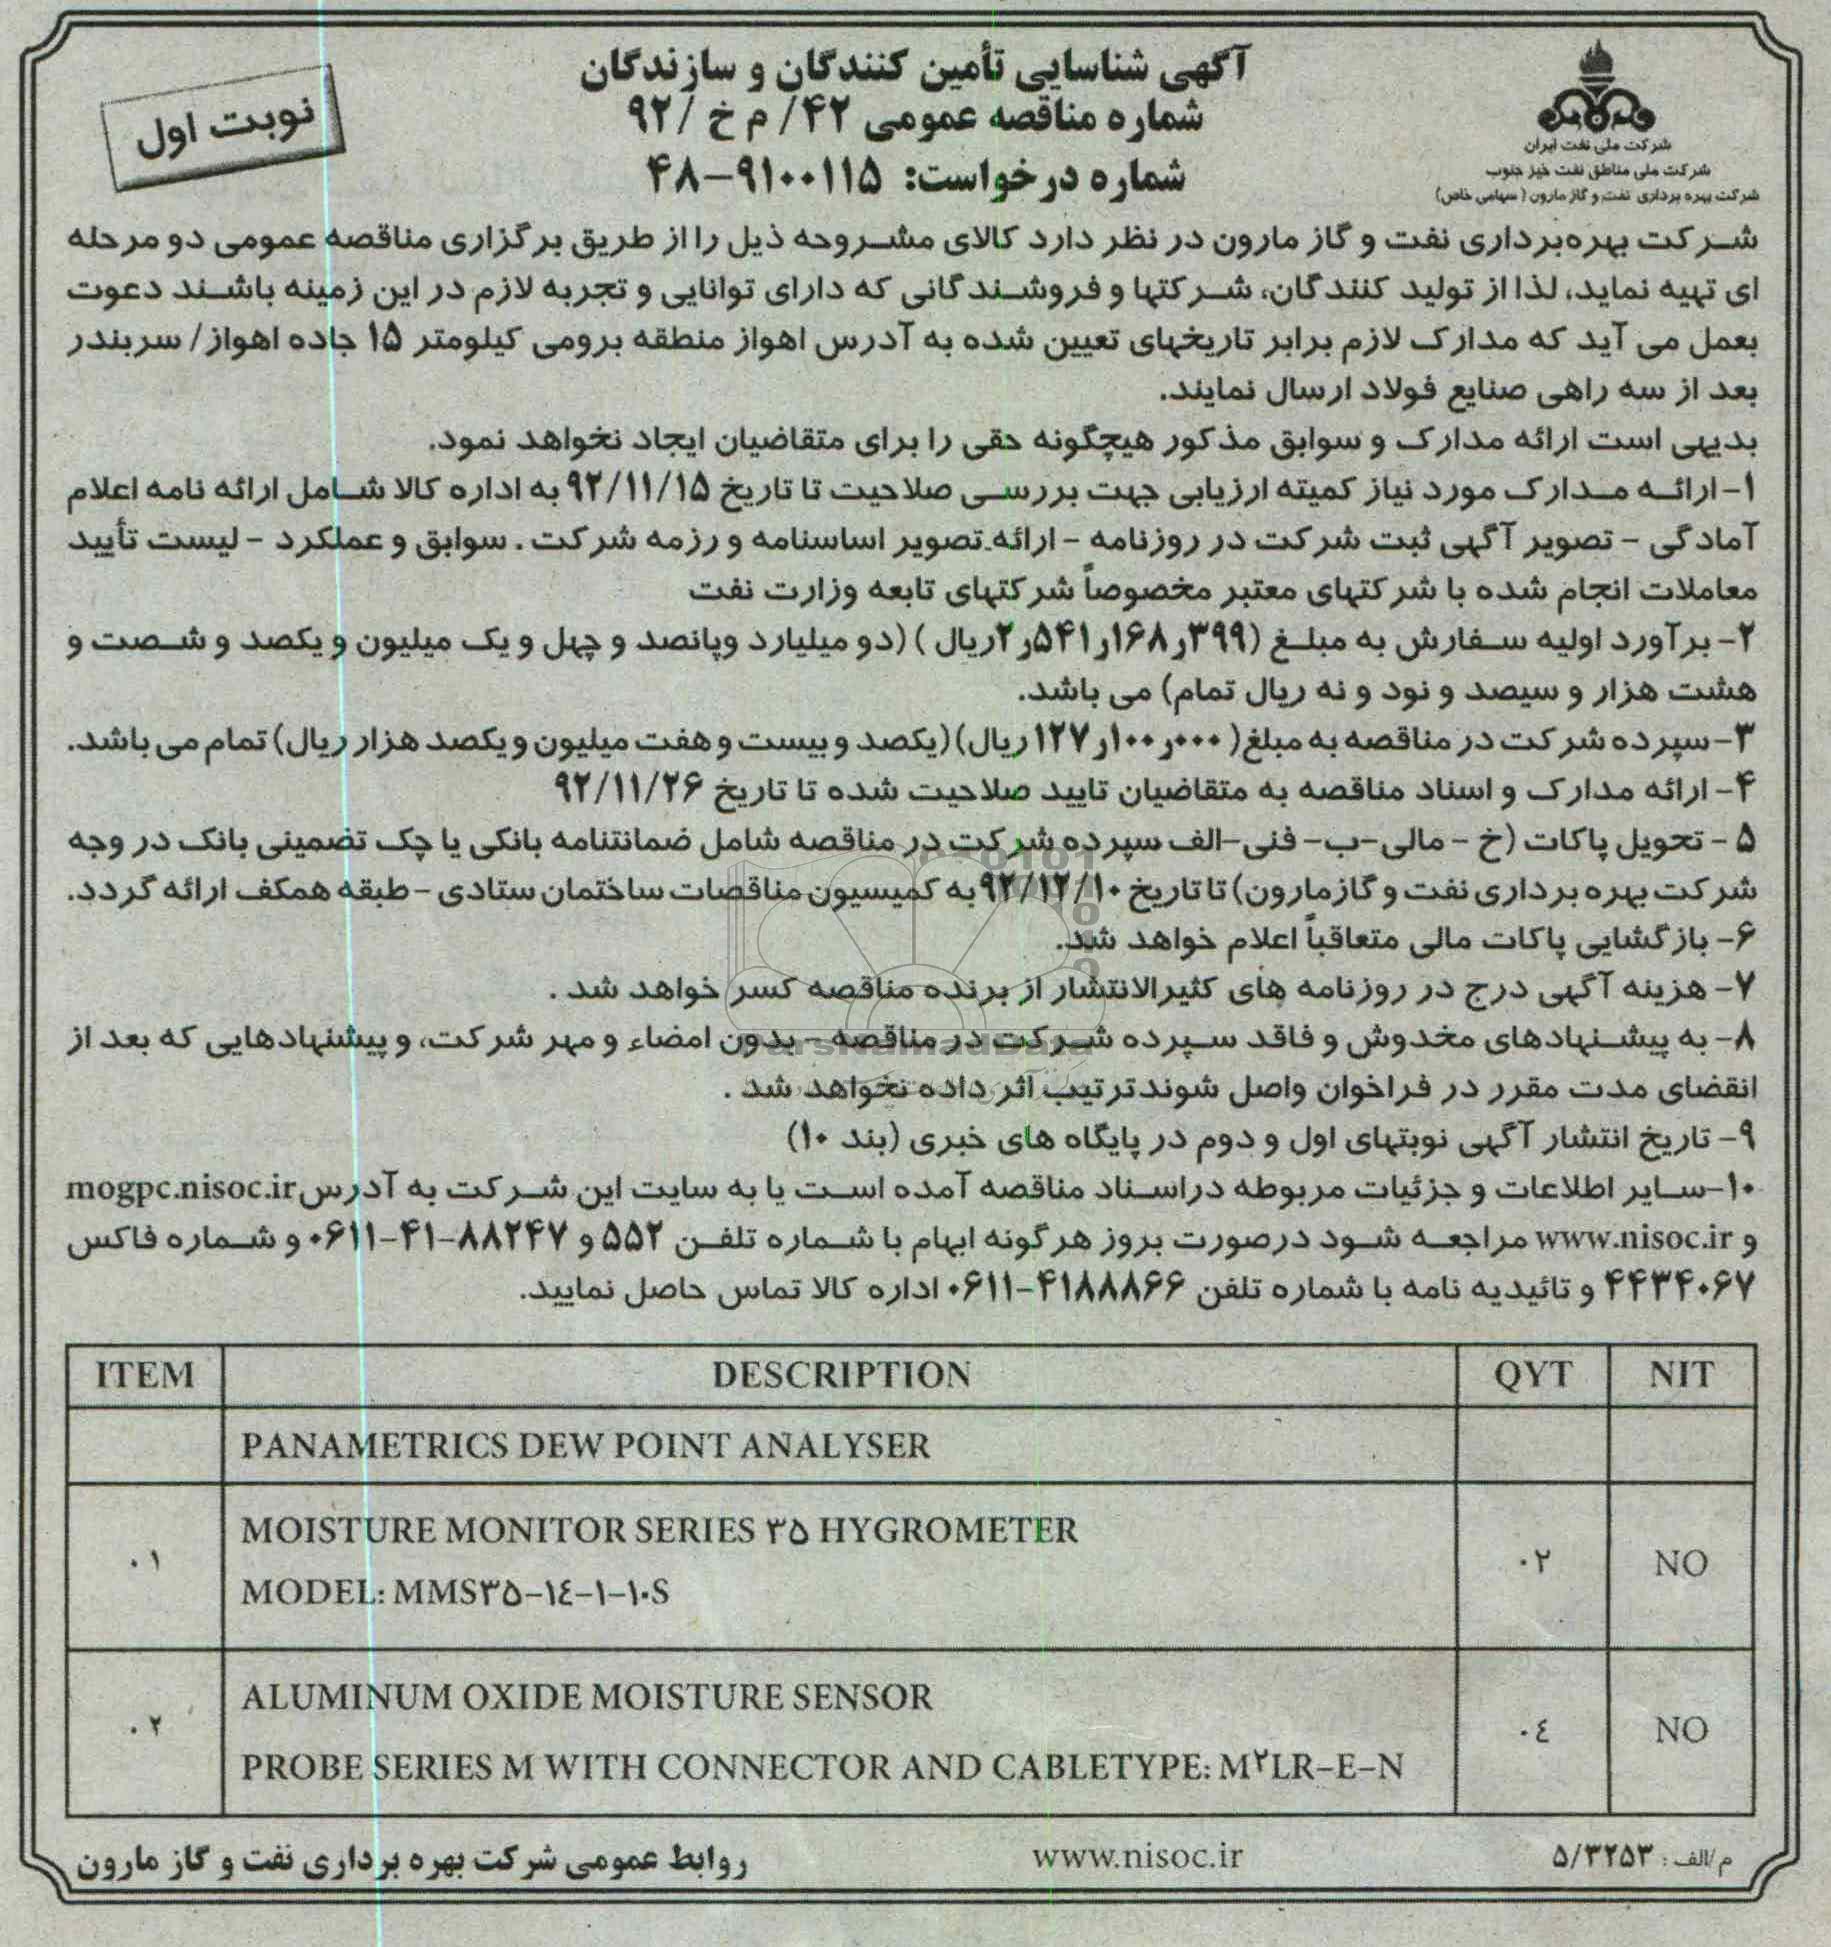 شرکت ملی نفت ایران
شرکت ملی مناطق نفت خیز جنوب
شرکت بهره برداری نفت و گاز مارون (سهامی خاص)
آگهی شناسایی تأمین کنندگان و سازندگان
شماره مناقصه عمومی ۴۲/ م خ /۹۲
شماره درخواست: ۹۱۰۰۱۱۵–۴۸
نوبت اول
شرکت بهره‌برداری نفت و گاز مارون در نظر دارد کالای مشروحه ذیل را از طریق برگزاری مناقصه عمومی دو مرحله
ای تهیه نماید، لذا از تولید کنندگان، شرکتها و فروشندگانی که دارای توانایی و تجربه لازم در این زمینه باشند دعوت
بعمل می آید که مدارک لازم برابر تاریخهای تعیین شده به آدرس اهواز منطقه برومی کیلومتر ۱۵ جاده اهواز/ سربندر
بعد از سه راهی صنایع فولاد ارسال نمایند.
بدیهی است ارائه مدارک و سوابق مذکور هیچگونه حقی را برای متقاضیان ایجاد نخواهد نمود.
۱-ارائه مدارک مورد نیاز کمیته ارزیابی جهت بررسی صلاحیت تا تاریخ ۹۲/۱۱/۱۵ به اداره کالا شامل ارائه نامه اعلام
آمادگی - تصویر آگهی ثبت شرکت در روزنامه - ارائه تصویر اساسنامه و رزمه شرکت . سوابق و عملکرد - لیست تأیید
معاملات انجام شده با شرکتهای معتبر مخصوصاً شرکتهای تابعه وزارت نفت
۲- برآورد اولیه سفارش به مبلغ (۲ر۵۴۱ر۱۶۸ر۳۹۹ریال ) (دو میلیارد وپانصد و چهل و یک میلیون و یکصد و شصت و
هشت هزار و سیصد و نود و نه ریال تمام) می باشد.
۳-سپرده شرکت در مناقصه به مبلغ( ۱۲۷ر۱۰۰ر۰۰۰ ریال)(یکصد و بیست و هفت میلیون و یکصد هزار ریال) تمام می باشد.
۴- ارائه مدارک و اسناد مناقصه به متقاضیان تایید صلاحیت شده تا تاریخ ۹۲/۱۱/۲۶
۵ - تحویل پاکات (خ - مالی-ب- فنی-الف سپرده شرکت در مناقصه شامل ضمانتنامه بانکی یا چک تضمینی بانک در وجه
شرکت بهره برداری نفت و گازمارون) تا تاریخ ۹۲/۱۲/۱۰ به کمیسیون مناقصات ساختمان ستادی - طبقه همکف ارائه گردد.
۶- بازگشایی پاکات مالی متعاقباً اعلام خواهد شد.
۷- هزینه آگهی درج در روزنامه های کثیرالانتشار از برنده مناقصه کسر خواهد شد .
۸- به پیشنهادهای مخدوش و فاقد سپرده شرکت در مناقصه - بدون امضاء و مهر شرکت، و پیشنهادهایی که بعد از
انقضای مدت مقرر در فراخوان واصل شوند ترتیب اثر داده نخواهد شد .
۹- تاریخ انتشار آگهی نوبتهای اول و دوم در پایگاه های خبری (بند ۱۰)
۱۰-سایر اطلاعات و جزئیات مربوطه دراسناد مناقصه آمده است یا به سایت این شرکت به آدرس mogpc.nisoc.ir
و www.nisoc.ir مراجعه شود درصورت بروز هرگونه ابهام با شماره تلفن ۵۵۲ و ۸۸۲۴۷-۴۱-۰۶۱۱ و شماره فاکس
۴۴۳۴۰۶۷ و تائیدیه نامه با شماره تلفن ۴۱۸۸۸۶۶-۰۶۱۱ اداره کالا تماس حاصل نمایید.
ITEM DESCRIPTION QYT NIT
PANAMETRICS DEW POINT ANALYSER
MOISTURE MONITOR SERIES ۳۵ HYGROMETER
۰۱ MODEL: MMS۳۵-۱٤-۱-۱۰S ۰۲ NO
ALUMINUM OXIDE MOISTURE SENSOR
۰۲ PROBE SERIES M WITH CONNECTOR AND CABLETYPE: M۲LR-E-N ۰٤ NO
م/الف : ۵/۳۲۵۳
www.nisoc.ir
روابط عمومی شرکت بهره برداری نفت و گاز مارون